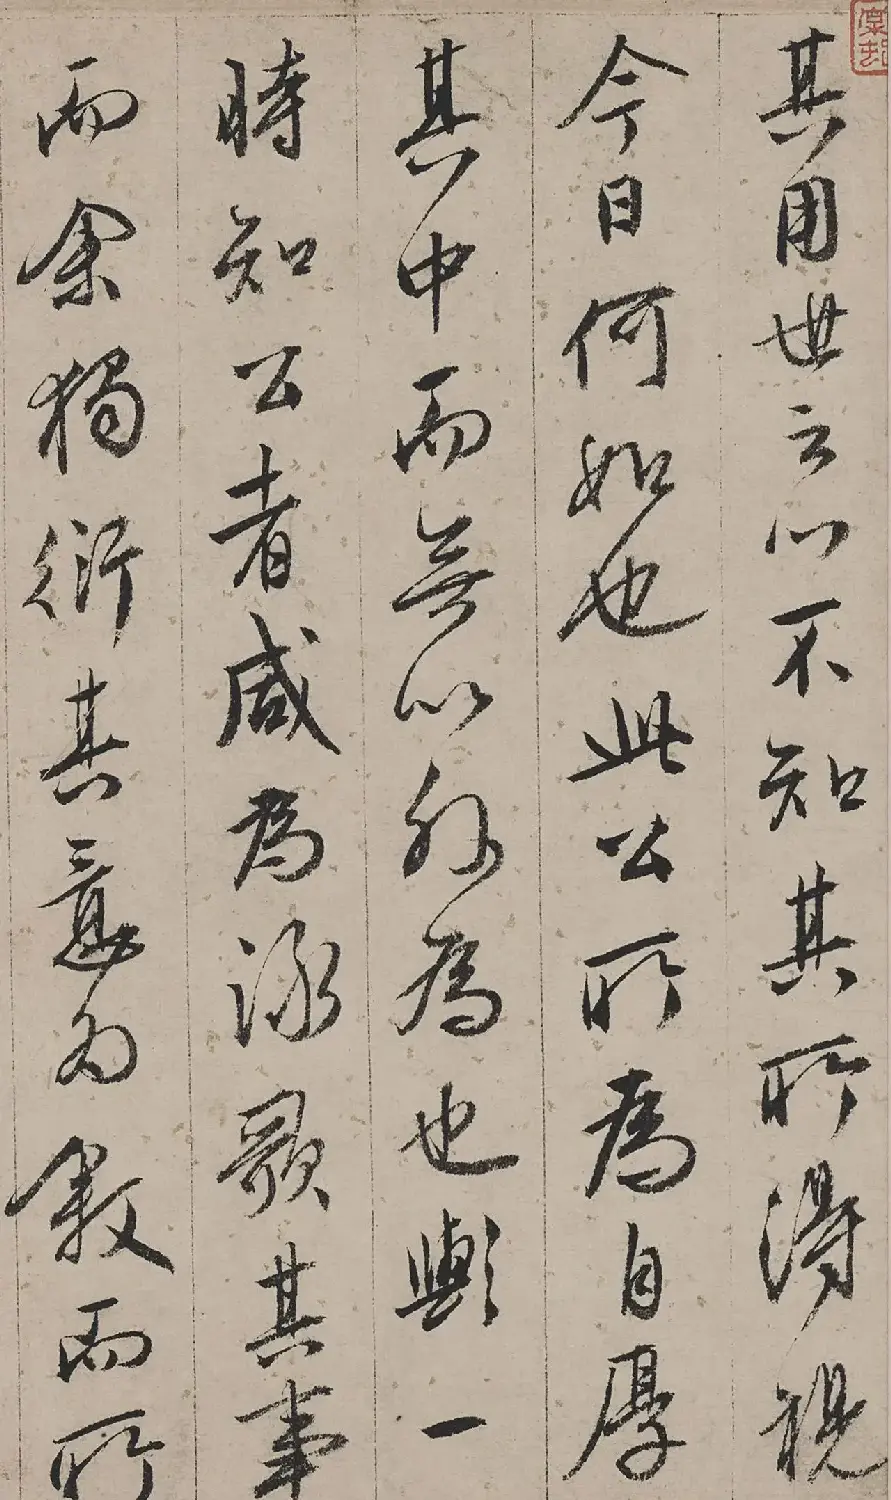 其用世之心不知其所得視
今日何如也此公所為自厚
其中而無以外為也歟一
時知公者咸為詠歌其事
而余獨衍其意為敘而所